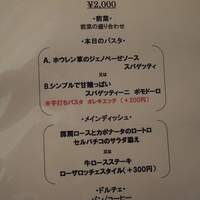 ¥2,000
・前菜・
前菜の盛り合わせ
・本日のパスタ・
A. ホウレン草のジェノベーゼソース
スパゲッティ
又は
B.シンプルで甘酸っぱい
スパゲッティーニ ポモドーロ
※手打ちパスタ オレキエッテ (+200円)
・メインディッシュ・
豚肩ロースとカポナータのロートロ
セルバチコのサラダ添え
又は
牛ロースステーキ
ローザロッチェスタイル(+300円)
・ドルチェ・